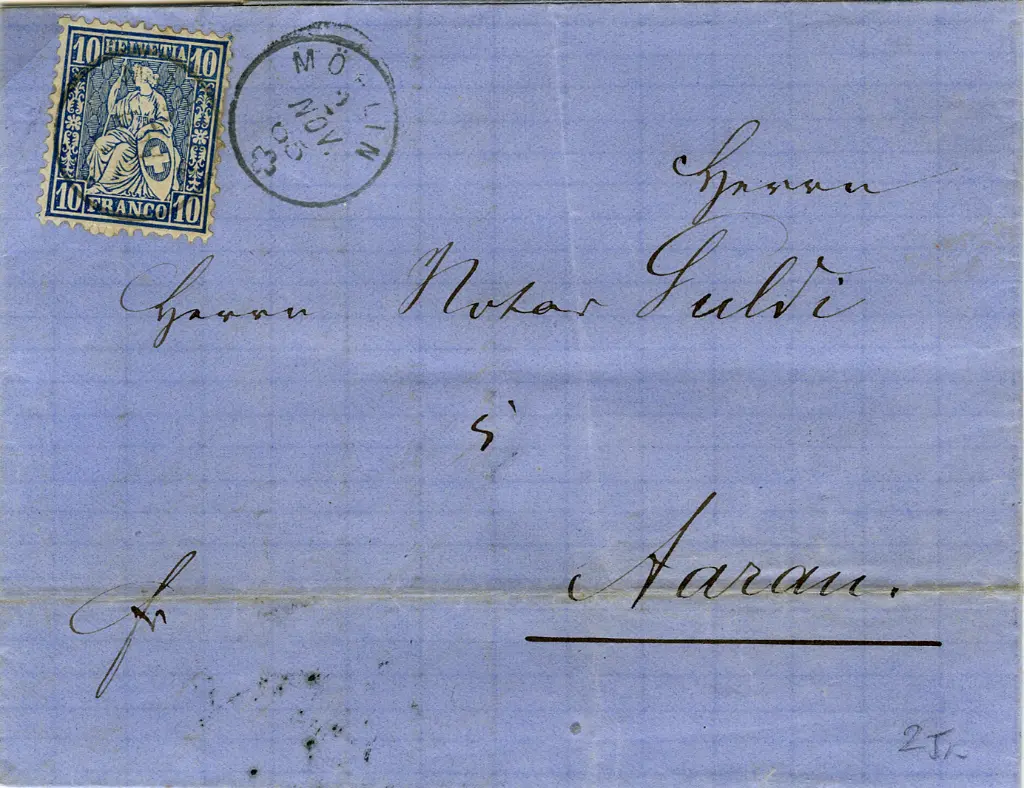 10 HELVETIA 10
10 FRANCO 10
MÖHLIN
2
NOV.
65
Herrn
Herrn Notar Suldi
in
Aarau.
fr